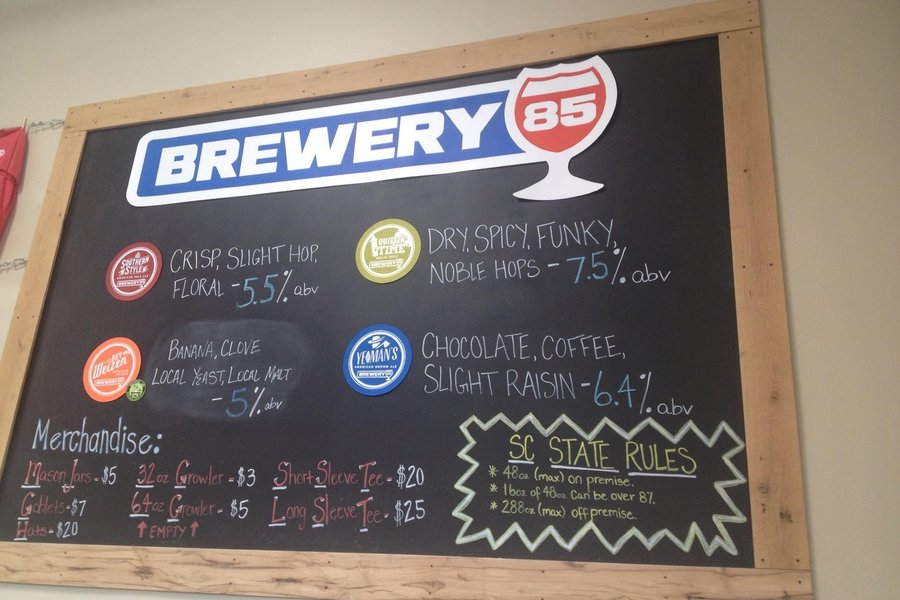 BREWERY 85
SOUTHERN
STYLE
BREWERY
CRISP, SLIGHT HOP,
FLORAL - 5.5% abv
QUITTIN'
TIME
BREWERY
DRY, SPICY, FUNKY,
NOBLE HOPS - 7.5% abv
Weizen
BREWERY
BANANA, CLOVE
LOCAL YEAST, LOCAL MALT
- 5% abv
YEOMAN'S
AMERICAN BROWN ALE
BREWERY
CHOCOLATE, COFFEE,
SLIGHT RAISIN - 6.4% abv
Merchandise:
Mason Jars - $5
Goblets - $7
Hats - $20
32oz Growler - $3
64oz Growler - $5
↑ EMPTY ↑
Short Sleeve Tee - $20
Long Sleeve Tee - $25
SC STATE RULES
* 48oz (max) on premise.
* 16oz of 48oz Can be over 8%.
* 288oz (max) off premise.